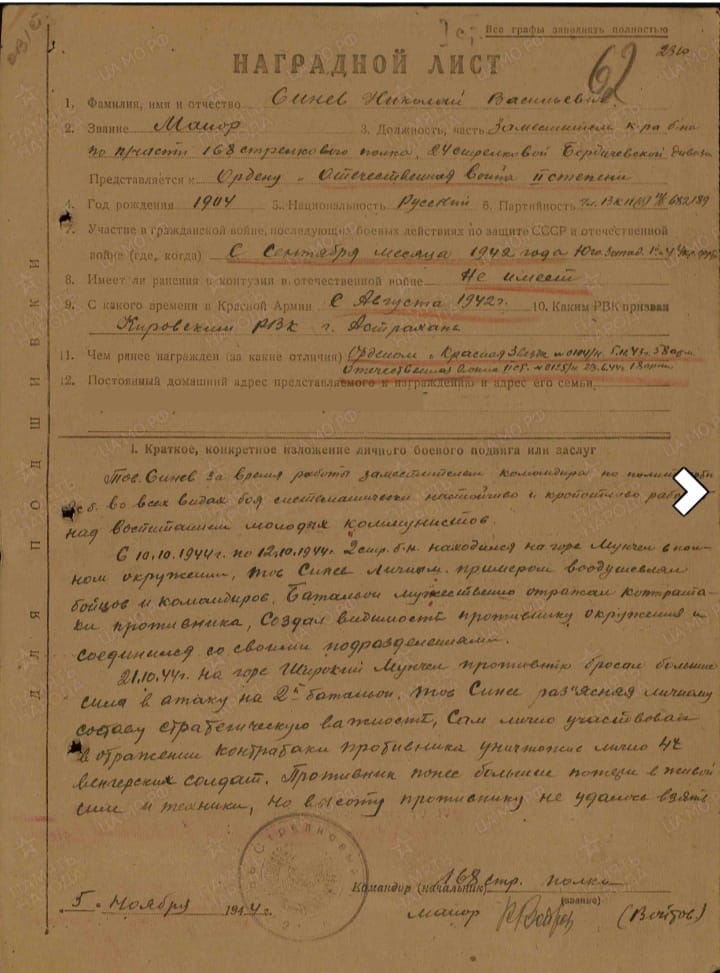 Все графы заполнять полностью
2310
62
НАГРАДНОЙ ЛИСТ
1. Фамилия, имя и отчество Синев Николай Васильевич
2. Звание Майор 3. Должность, часть Заместителем к-ра б-на
по п/части 168 стрелкового полка, 24 стрелковой Бердичевской дивизии
Представляется к Ордену „Отечественная Война II степени
4. Год рождения 1904 5. Национальность Русский 6. Партийность
7. Участие в гражданской войне, последующих боевых действиях по защите СССР и отечественной
войне (где, когда) С Сентября месяца 1942 года Юго Запад.
8. Имеет ли ранения и контузии в отечественной войне Не имеет
9. С какого времени в Красной Армии С Августа 1942 г. 10. Каким РВК призван
Кировским РВК г. Астрахань
11. Чем ранее награжден (за какие отличия) Орденом „Красная Звезда
Отечественная Война IIст. 23.6.44г. 18 арм.
12. Постоянный домашний адрес представляемого к награждению и адрес его семьи
I. Краткое, конкретное изложение личного боевого подвига или заслуг
Тов. Синев за время работы заместителем командира по
во всех видах боя систематически настойчиво и кропотливо
над воспитанием молодых коммунистов.
С 10.10.1944г. по 12.10.1944г. 2 стр. б-н. находился на горе Мунчел в пол-
ном окружении, тов Синев личным примером воодушевлял
бойцов и командиров. Батальон мужественно отражал контрата-
ки противника, Создал видимость противнику окружения и
соединился со своими подразделениями.
21.10.44г. На горе Широкий Мунчел противник бросал большие
сила в атаку на 2й батальон. тов Синев раз"ясняя личному
составу стратегическую важность, Сам лично участвовал
в отражении контратаки противника уничтожив лично 4х
венгерских солдат. Противник понес большие потери в живой
силе и технике, но высоту противнику не удалось взять
Командир (начальник) 168 стр. полка
(звание)
„5„ Ноября 1944 г. майор (Войтов)
ДЛЯ ПОДШИВКИ